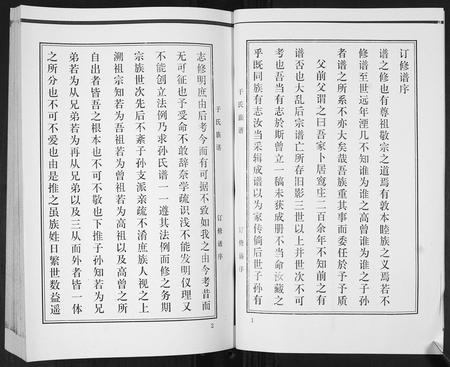 订修谱序
谱之修也有尊祖敬宗之道焉有敦本睦族之义焉若不
修谱至世远年湮几不知谁为谁之高曾谁为谁之子孙
者谱之所系不亦大矣哉吾族重其事而委任於予予质
父前父谓之曰吾家卜居寛庄二百余年不知前之有
谱否也大乱后宗谱亡所存旧影三世以上并世次不可
考也吾当有志於斯曾立一稿未获成册不当命汝藏之
乎既同族有志汝当采辑成谱以为家传倘后世子孙有
于氏族谱
订修谱序
1
志修明庶由后考今而有可据不致如我之由今考昔而
无可征也予受命不敢辞奈学疏识浅不能发明仪理又
不能创立法例乃求孙氏谱一一遵其法例而修之务期
宗族世次先后不紊子孙支派亲疏不淆庶族人视之上
溯祖宗知若为吾祖若为曾祖若为高祖以及高曾之所
自出者皆吾之根本也不可不敬也下推子孙知若为兄
弟若为从兄弟若为再从兄弟以及三从而外者皆一体
之所分也不可不爱也由是推之虽族姓日繁世数益遥
于氏族谱
订修谱序
2